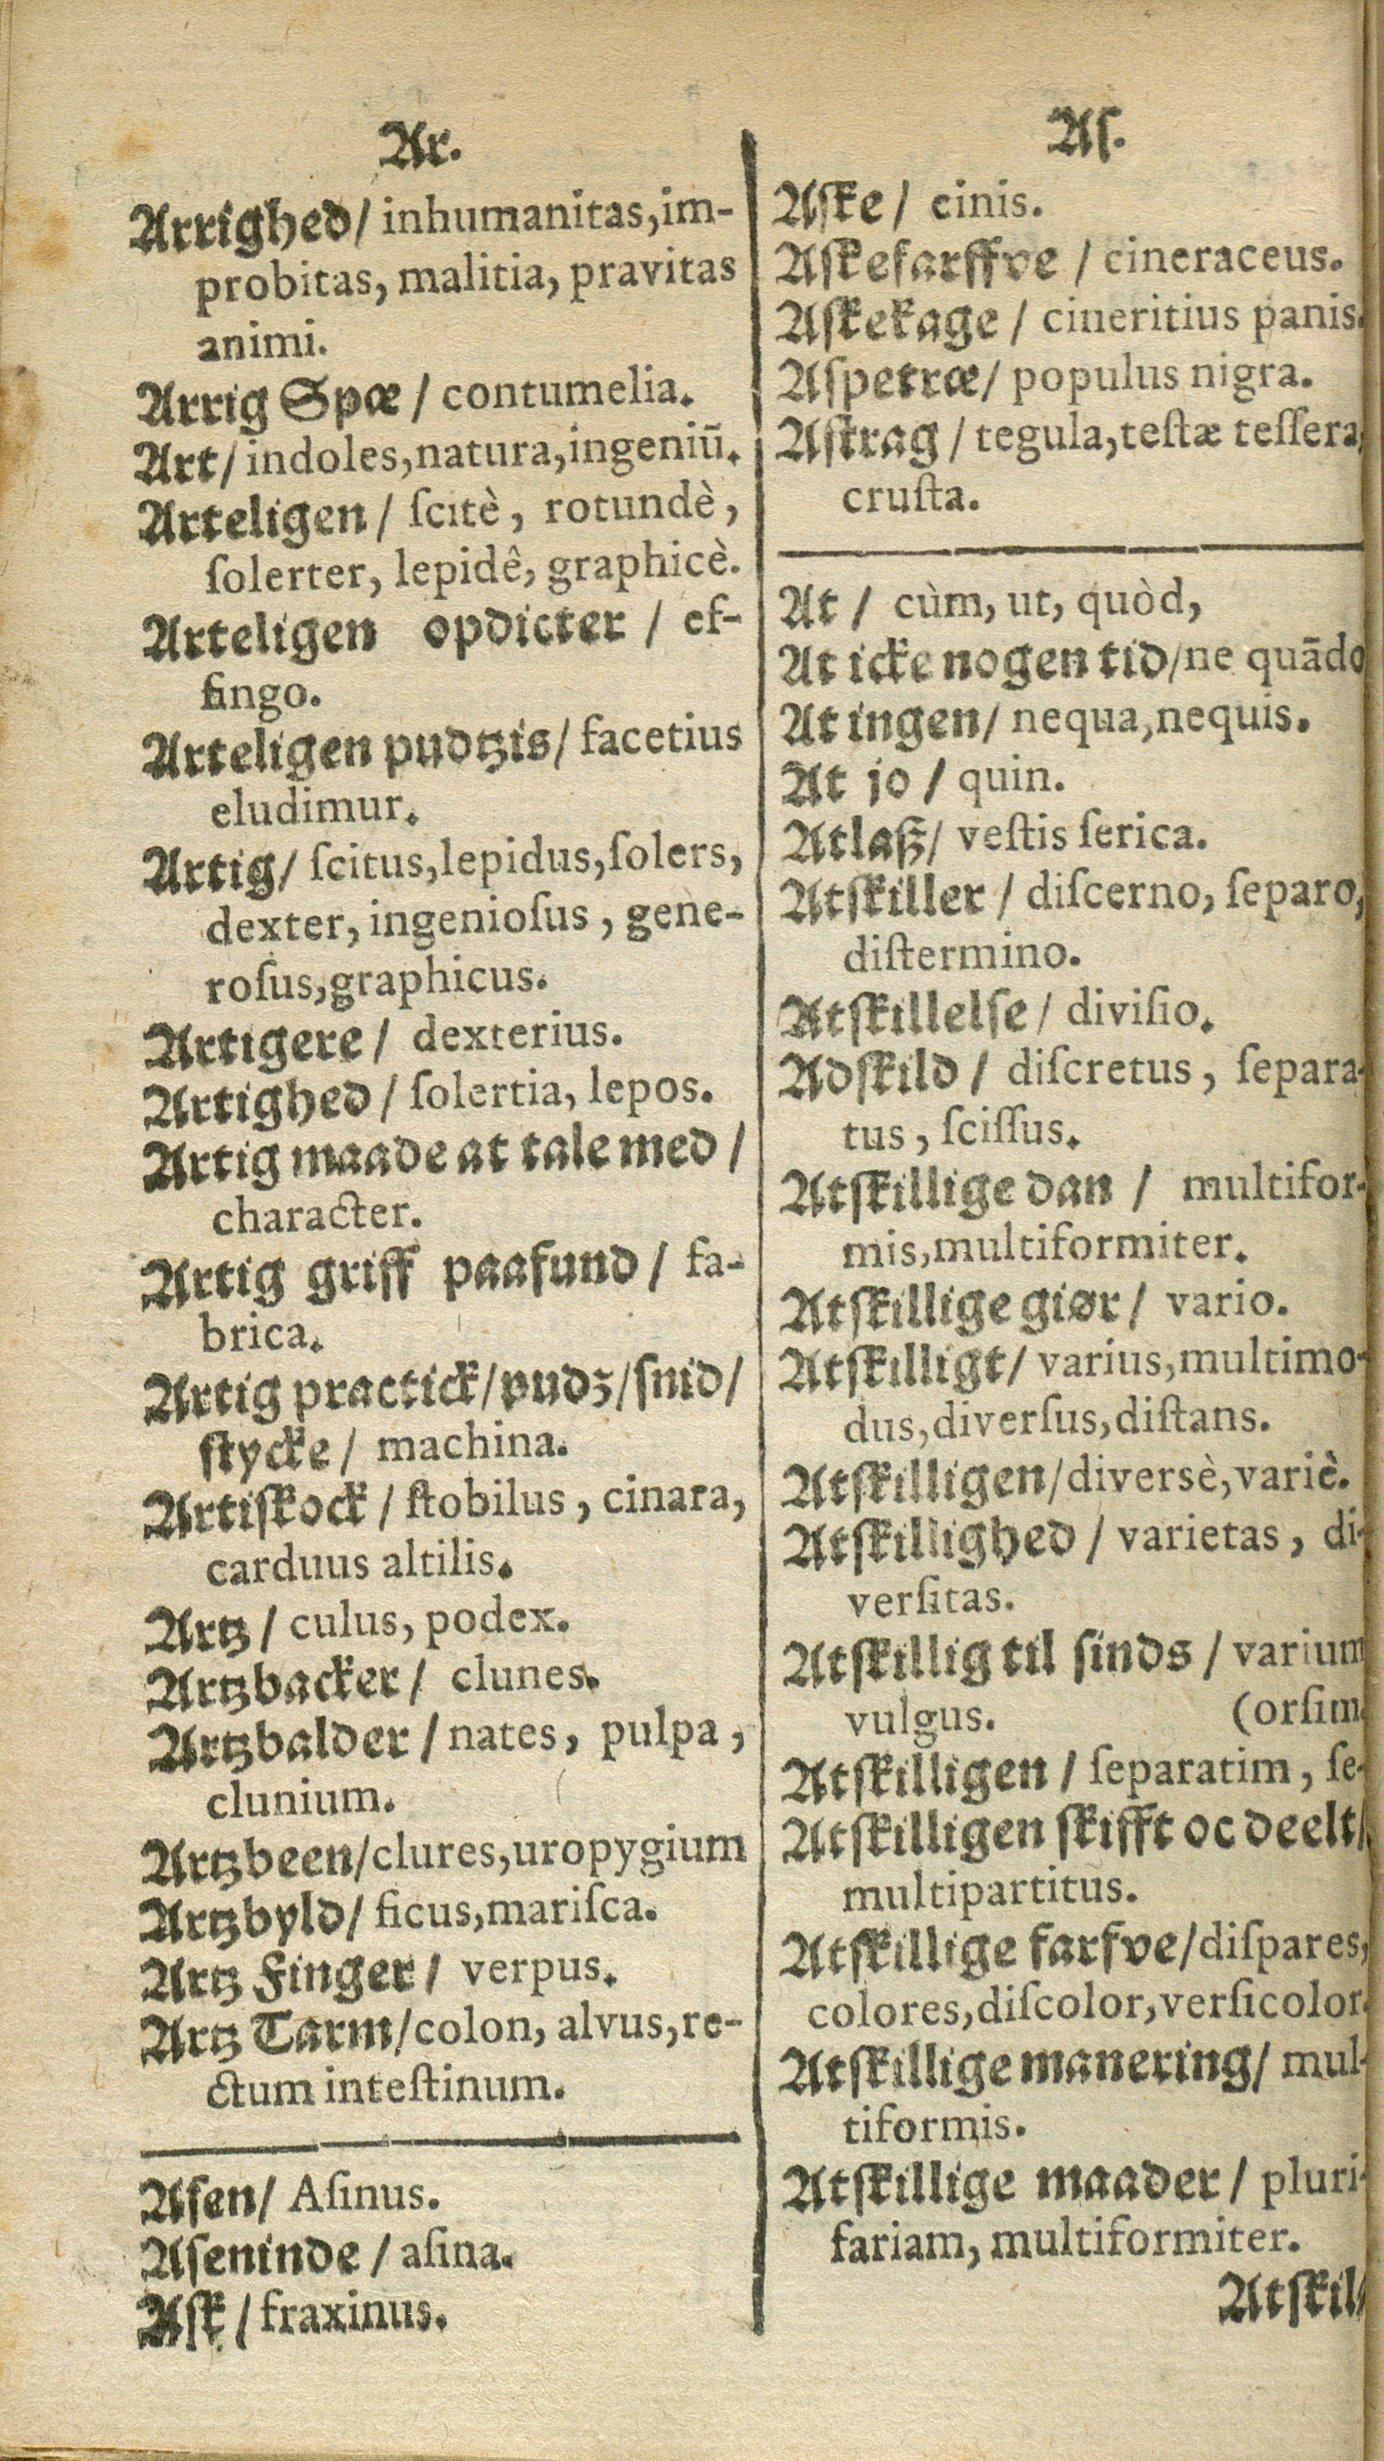 Ar.
Arrighed/ inhumanitas,im-
probitas, malitia, pravitas
animi.
Arrig Spæ / contumelia.
Art/ indoles,natura,ingeniū.
Arteligen / ſcitè, rotundè,
ſolerter, lepidê, graphicè.
Arteligen opdicter / ef-
fingo.
Arteligen pudtzis/ facetius
eludimur.
Artig/ ſcitus,lepidus,ſolers,
dexter, ingenioſus, gene-
roſus,graphicus.
Artigere / dexterius.
Artighed / ſolertia, lepos.
Artig maade at tale med /
character.
Artig griff paafund / fa-
brica.
Artig practick/pudz/ſnid/
ſtycke / machina.
Artiſkock / ſtobilus, cinara,
carduus altilis.
Artz / culus, podex.
Artzbacker / clunes.
Artzbalder / nates, pulpa,
clunium.
Artzbeen/clures,uropygium
Artzbyld/ ficus,mariſca.
Artz Finger / verpus.
Artz Tarm/colon, alvus,re-
ctum inteſtinum.
Aſen/ Aſinus.
Aſeninde / aſina.
Aſk / fraxinus.
Aſ.
Aſke / cinis.
Aſkefarffve / cineraceus.
Aſkekage / cineritius panis.
Aſpetræ/ populus nigra.
Aſtrag / tegula,teſtæ teſſera,
cruſta.
At / cùm, ut, quòd,
At icke nogen tid/ne quādo
At ingen/ nequa,nequis.
At jo / quin.
Atlaß/ veſtis ſerica.
Atſkiller / diſcerno, ſeparo,
diſtermino.
Atſkillelſe / diviſio.
Adſkild / diſcretus, ſepara-
tus, ſciſſus.
Atſkillige dan / multifor-
mis,multiformiter.
Atſkillige giør / vario.
Atſkilligt/ varius,multimo-
dus,diverſus,diſtans.
Atſkilligen/diversè,variè.
Atſkillighed / varietas, di-
verſitas.
Atſkillig til ſinds / varium
vulgus. (orſim.
Atſkilligen / ſeparatim, ſe-
Atſkilligen ſkifft oc deelt/
multipartitus.
Atſkillige farfve/diſpares,
colores,diſcolor,verſicolor.
Atſkillige manering/ mul-
tiformis.
Atſkillige maader / pluri-
fariam, multiformiter.
Atſkil/